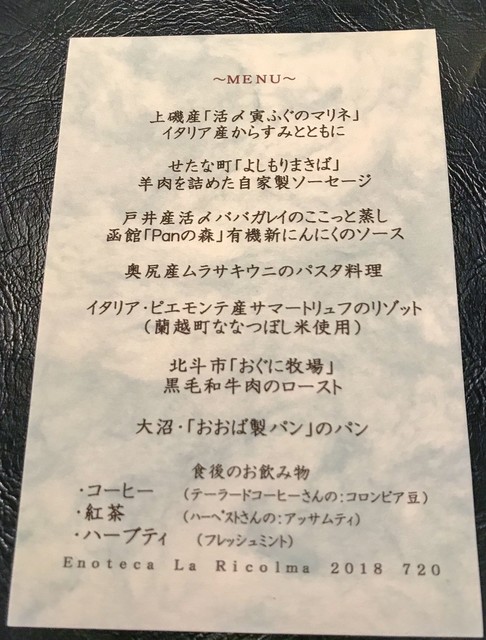 ～MENU～
上磯産「活〆寅ふぐのマリネ」
イタリア産からすみとともに
せたな町「よしもりまきば」
羊肉を詰めた自家製ソーセージ
戸井産活〆ババガレイのここっと蒸し
函館「Panの森」有機新にんにくのソース
奥尻産ムラサキウニのパスタ料理
イタリア・ピエモンテ産サマートリュフのリゾット
（蘭越町ななつぼし米使用）
北斗市「おぐに牧場」
黒毛和牛肉のロースト
大沼・「おおば製パン」のパン
食後のお飲み物
・コーヒー （テーラードコーヒーさんの：コロンビア豆）
・紅茶 （ハーベストさんの：アッサムティ）
・ハーブティ （フレッシュミント）
Enoteca La Ricolma 2018 720